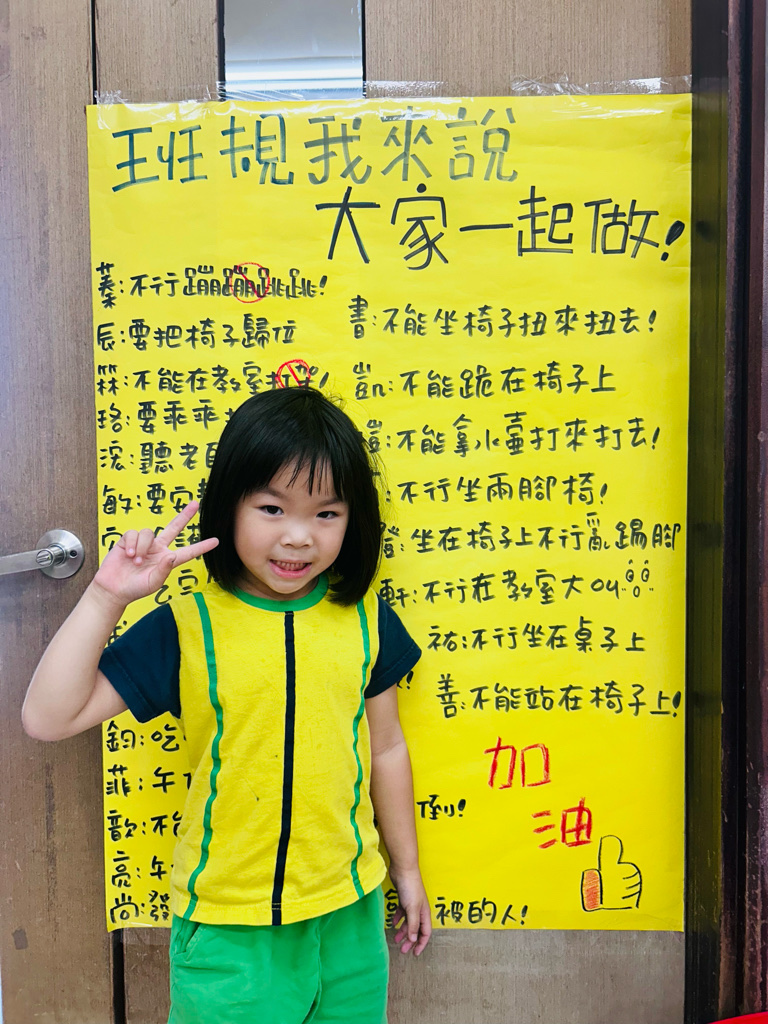 班規我來說
大家一起做!
蓁:不行蹦蹦跳跳!
辰:要把椅子歸位
霖:不能在教室打架!
珞:要乖乖
聽老
敏:要安
鈞:吃
菲:午
歆:不
亮:午
尚:發
書:不能坐椅子扭來扭去!
凱:不能跪在椅子上
:不能拿水壺打來打去!
:不行坐兩腳椅!
:坐在椅子上不行亂踢腳
軒:不行在教室大ou
祐:不行坐在桌子上
善:不能站在椅子上!
倒!
被的人!
加
油